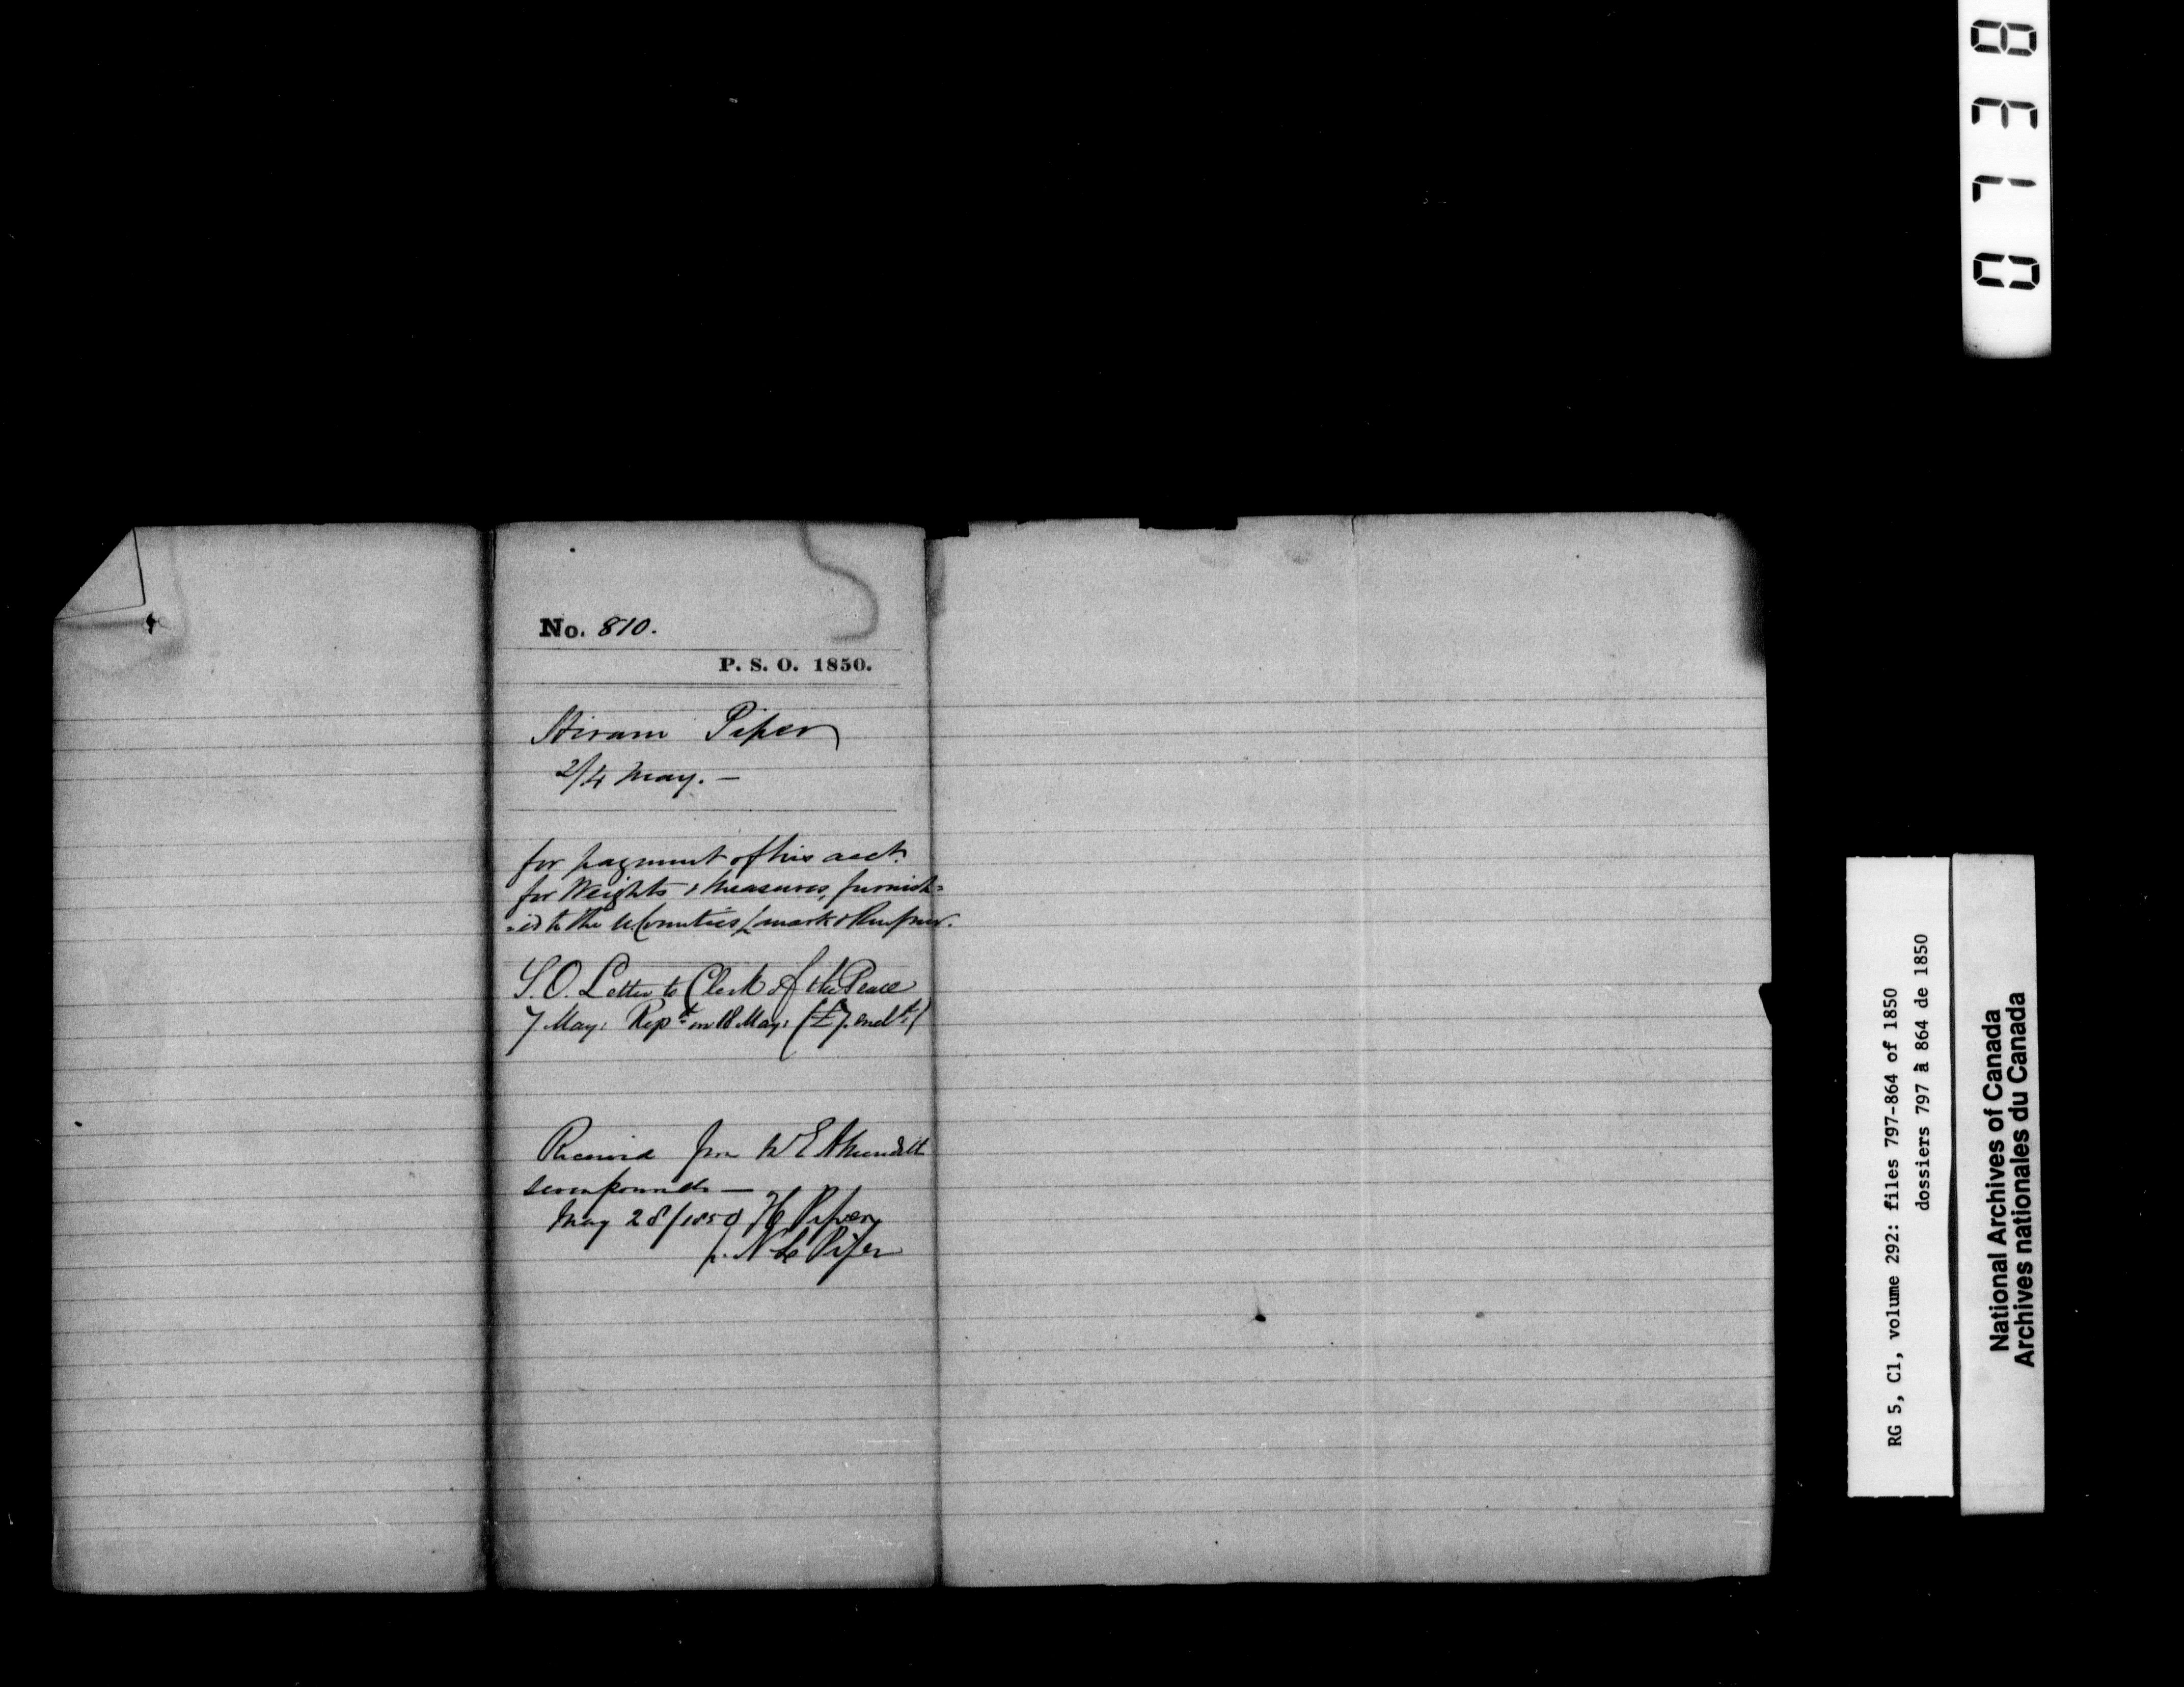 No. 810.
P. S. O. 1850.
Hiram Piper
2/4 May. —
for payment of his acct.
for Weights & Measures, furnish=
=ed to the U. Counties Lanark & Renfrew.
S.O. Letter to Clerk of the Peace
7 May: Repd. on 18 May: (£7. encld.)
Received from W E
seven pounds —
May 28/1850 H Piper
p. N L Piper
0738
RG 5, C1, volume 292: files 797-864 of 1850
dossiers 797 à 864 de 1850
National Archives of Canada
Archives nationales du Canada